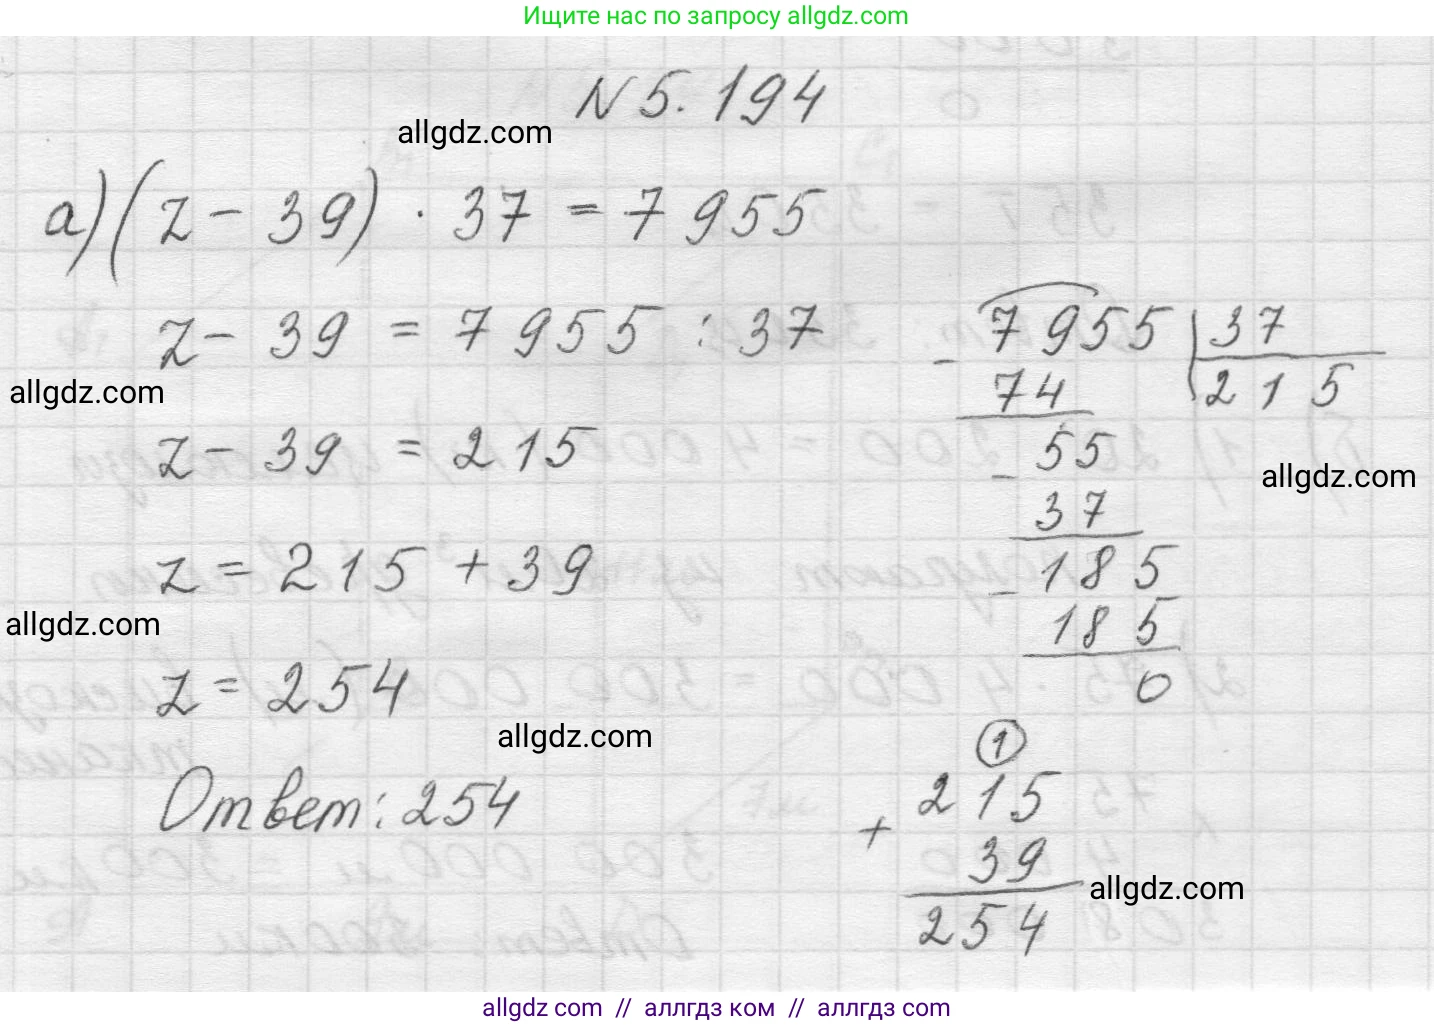 Ищите нас по запросу allgdz.com
N 5.194
allgdz.com
а) (z - 39) · 37 = 7955
z - 39 = 7955 : 37
allgdz.com
z - 39 = 215
z = 215 + 39
allgdz.com
z = 254
allgdz.com
Ответ: 254
- 7955 | 37
74 215
- 55
allgdz.com
37
- 185
185
0
1
215
+ 39
allgdz.com
254
allgdz.com // аллгдз ком // аллгдз com